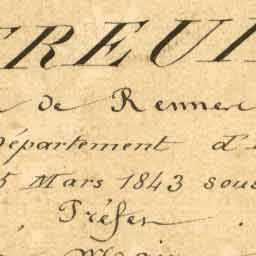 TREUI
de Rennes
Département d'I
5 Mars 1843 sous
Préfet